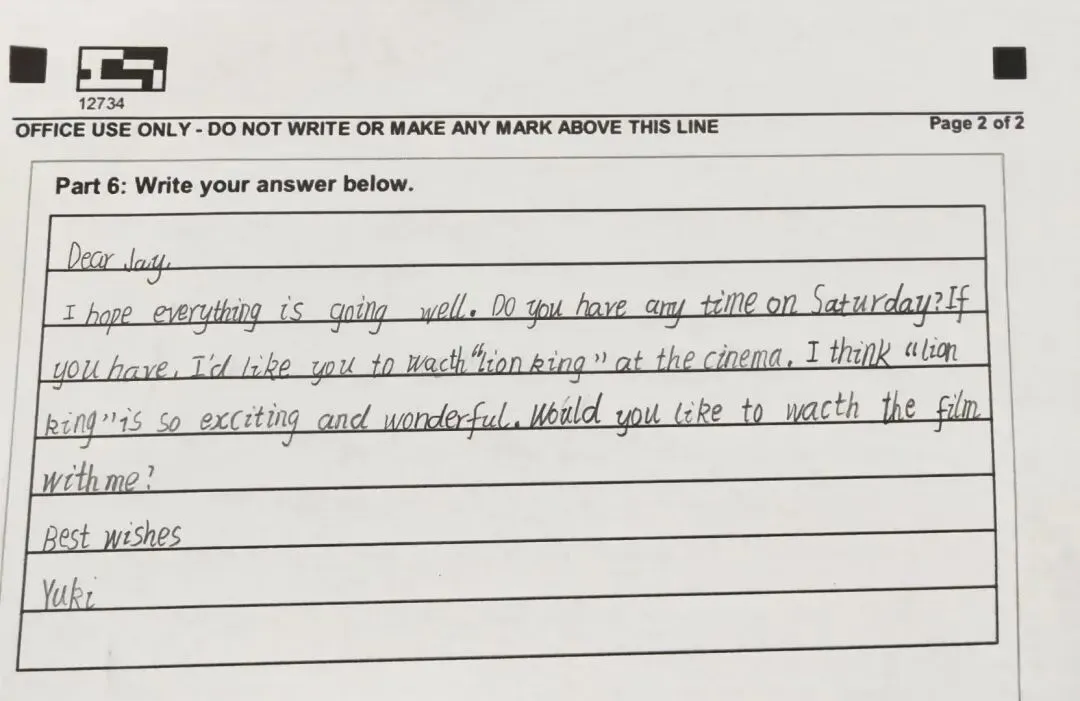 12734
OFFICE USE ONLY - DO NOT WRITE OR MAKE ANY MARK ABOVE THIS LINE
Page 2 of 2
Part 6: Write your answer below.
Dear Jay,
I hope everything is going well. Do you have any time on Saturday? If
you have, I'd like you to wacth "lion king" at the cinema. I think "lion
king" is so exciting and wonderful. Would you like to wacth the film
with me?
Best wishes
Yuki